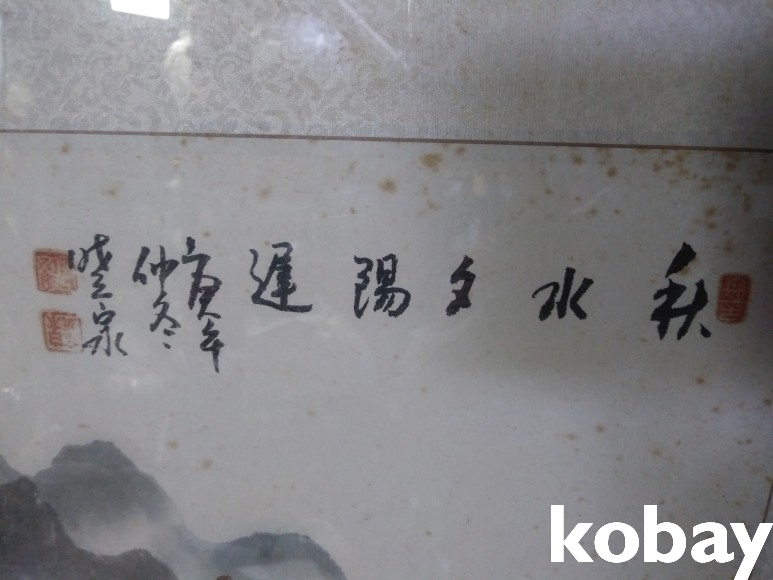 秋水夕陽遲
庚申年
仲冬
曉泉
kobay